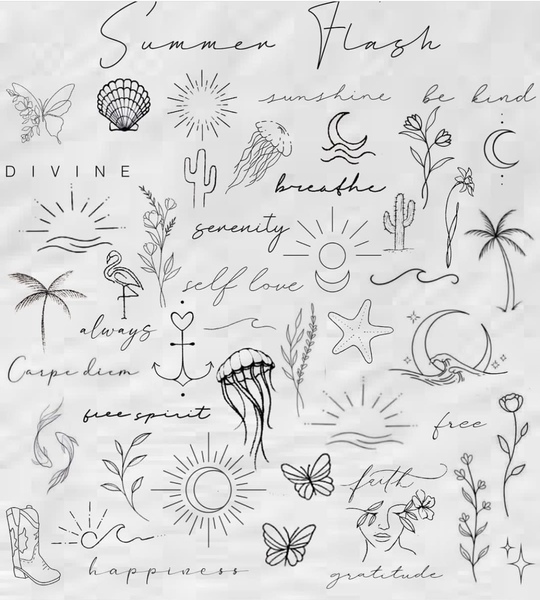 Summer Flash
sunshine
be kind
DIVINE
breathe
serenity
self love
always
Carpe diem
free spirit
free
faith
happiness
gratitude